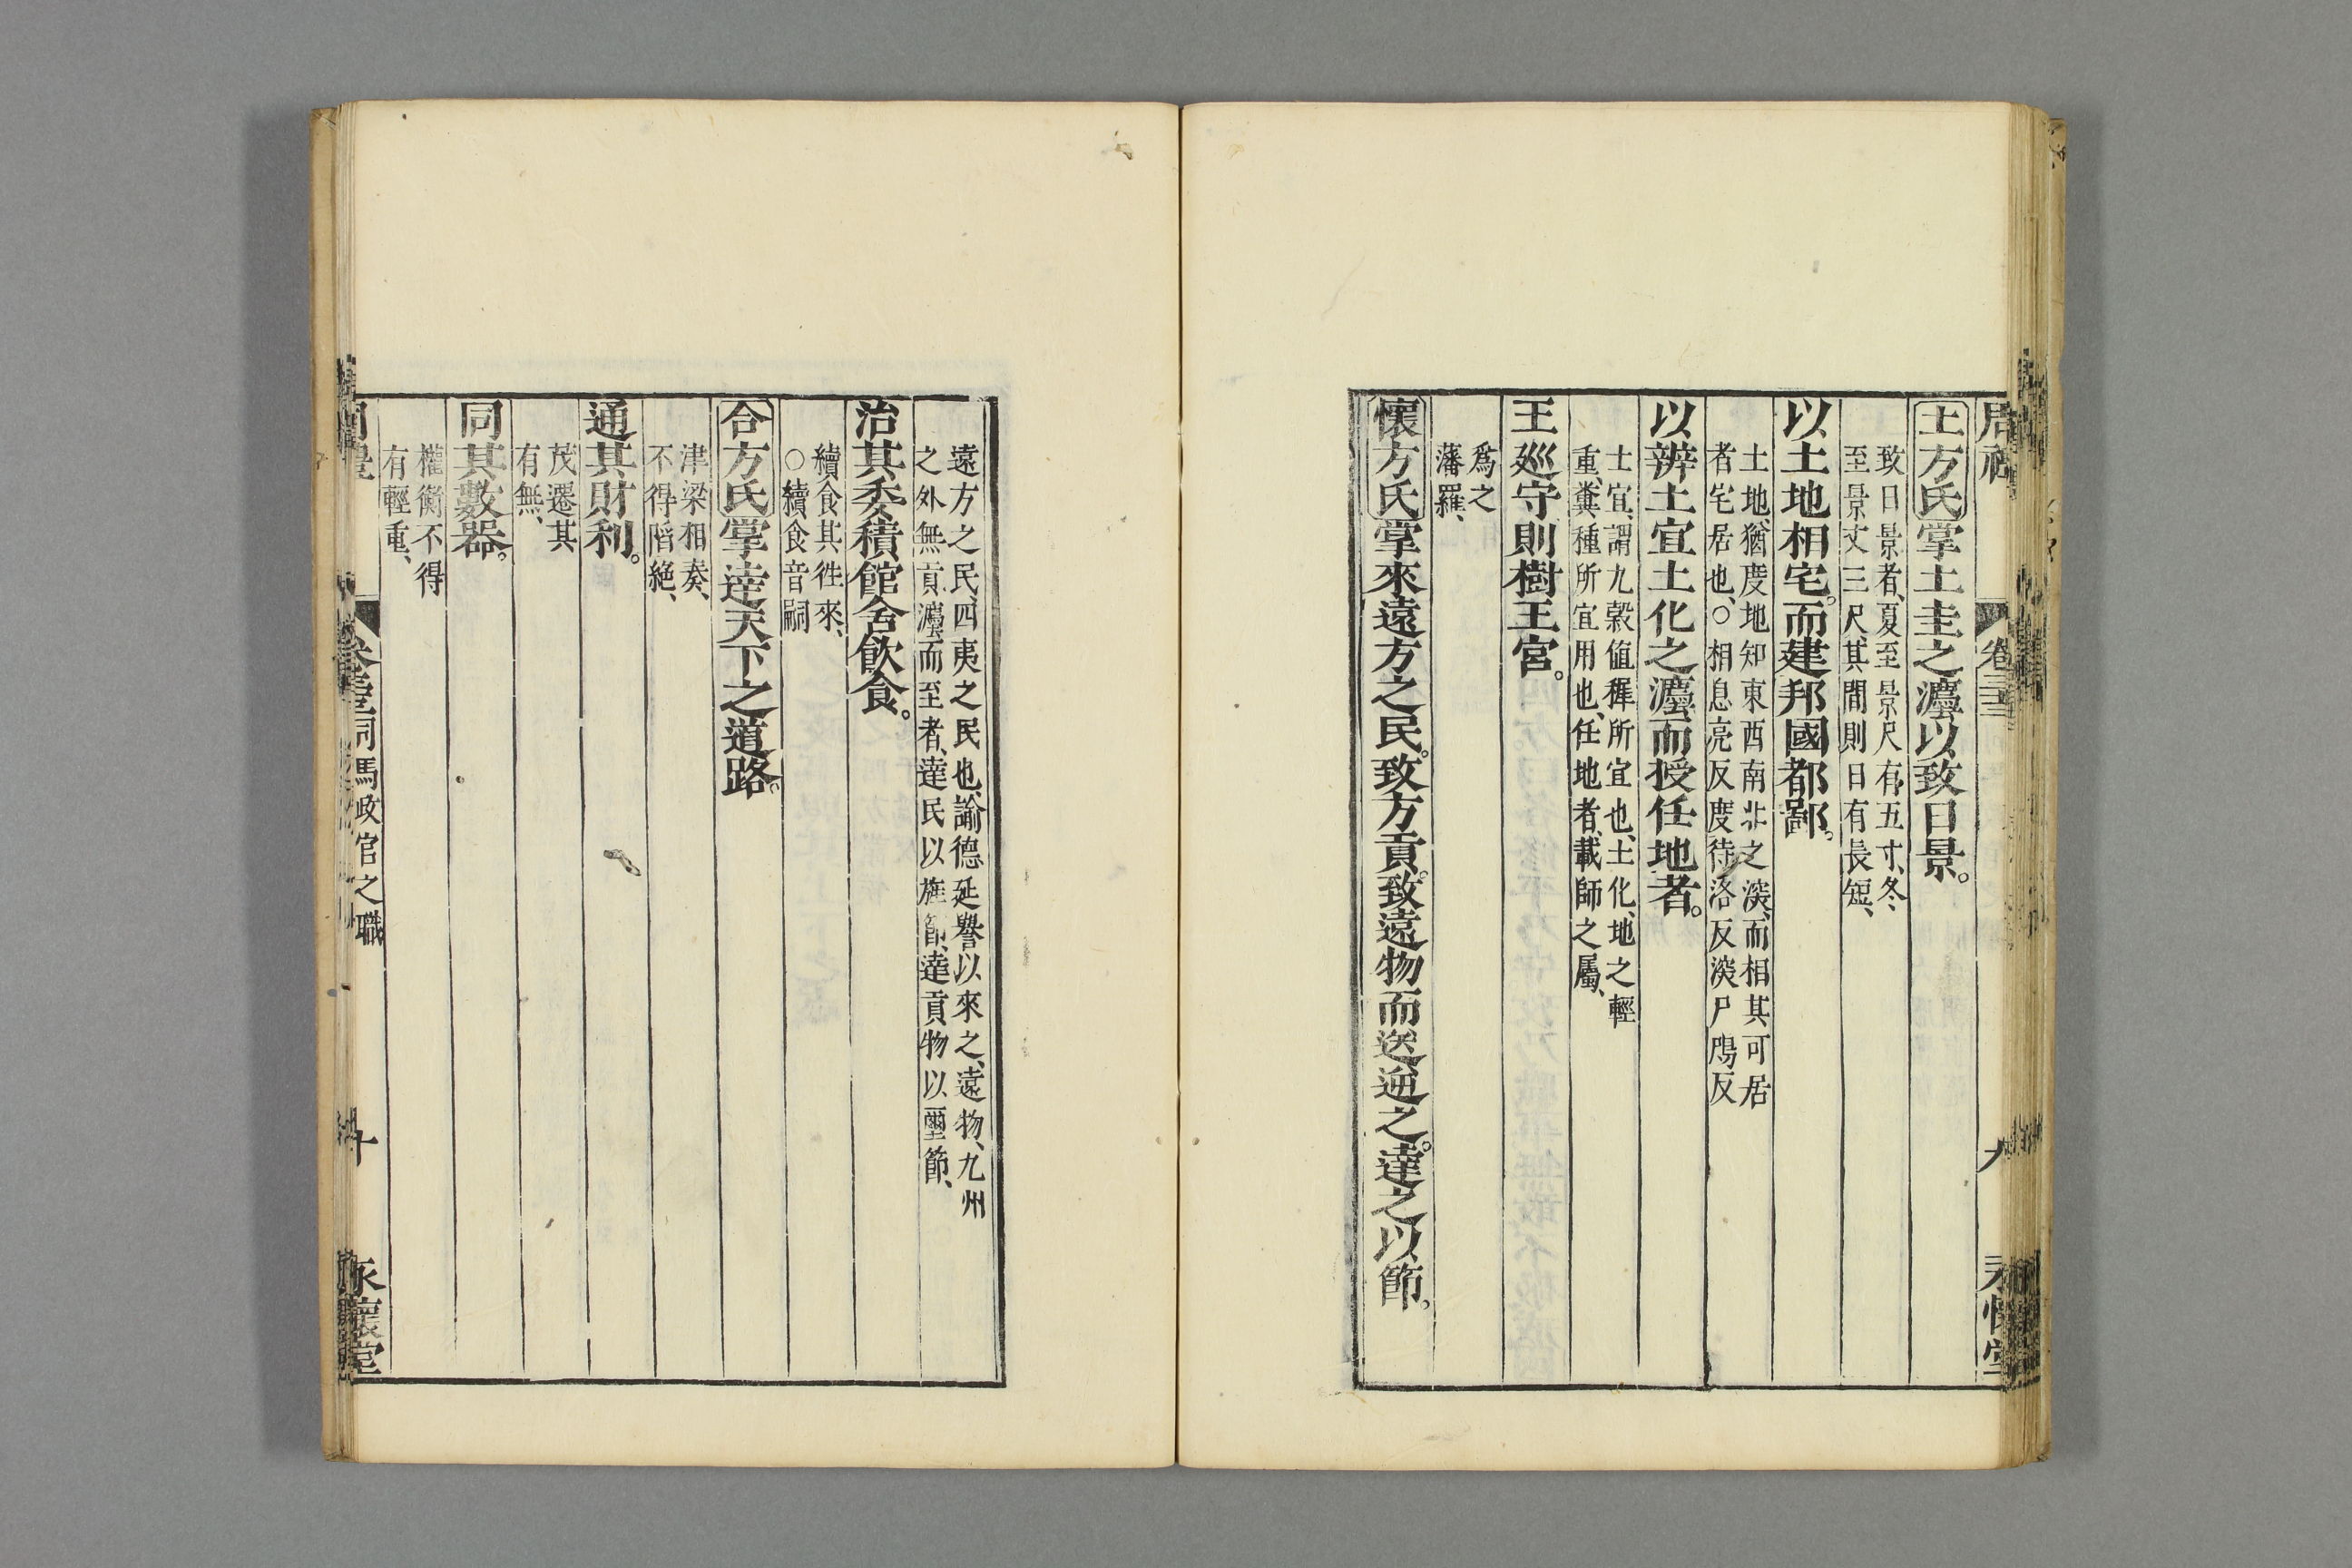 周禮 卷三十三 九 永懷堂
土方氏掌土圭之灋以致日景。
致日景者、夏至景尺有五寸、冬
至景丈三尺、其間則日有長短、
以土地相宅。而建邦國都鄙。
土地、猶度地知東西南北之湥、而相其可居
者宅居也、○相息亮反度待洛反湥尸鴆反
以辨土宜土化之灋而授任地者。
土宜、謂九穀値稺所宜也、土化、地之輕
重、糞種所宜用也、任地者、載師之屬、
王廵守則樹王宮。
爲之
藩羅、
懷方氏掌來遠方之民。致方貢。致遠物而送逆之。達之以節。
遠方之民、四夷之民也、諭德延譽以來之、遠物、九州
之外無貢灋而至者、達民以旌節、達貢物以璽節、
治其委積館舍飲食。
續食其徃來、
○續食音嗣
合方氏掌達天下之道路。
津梁相奏、
不得䧟絶、
通其財利。
茂遷其
有無、
同其數器。
權衡不得
有輕重、
司馬政官之職 十 永懷堂